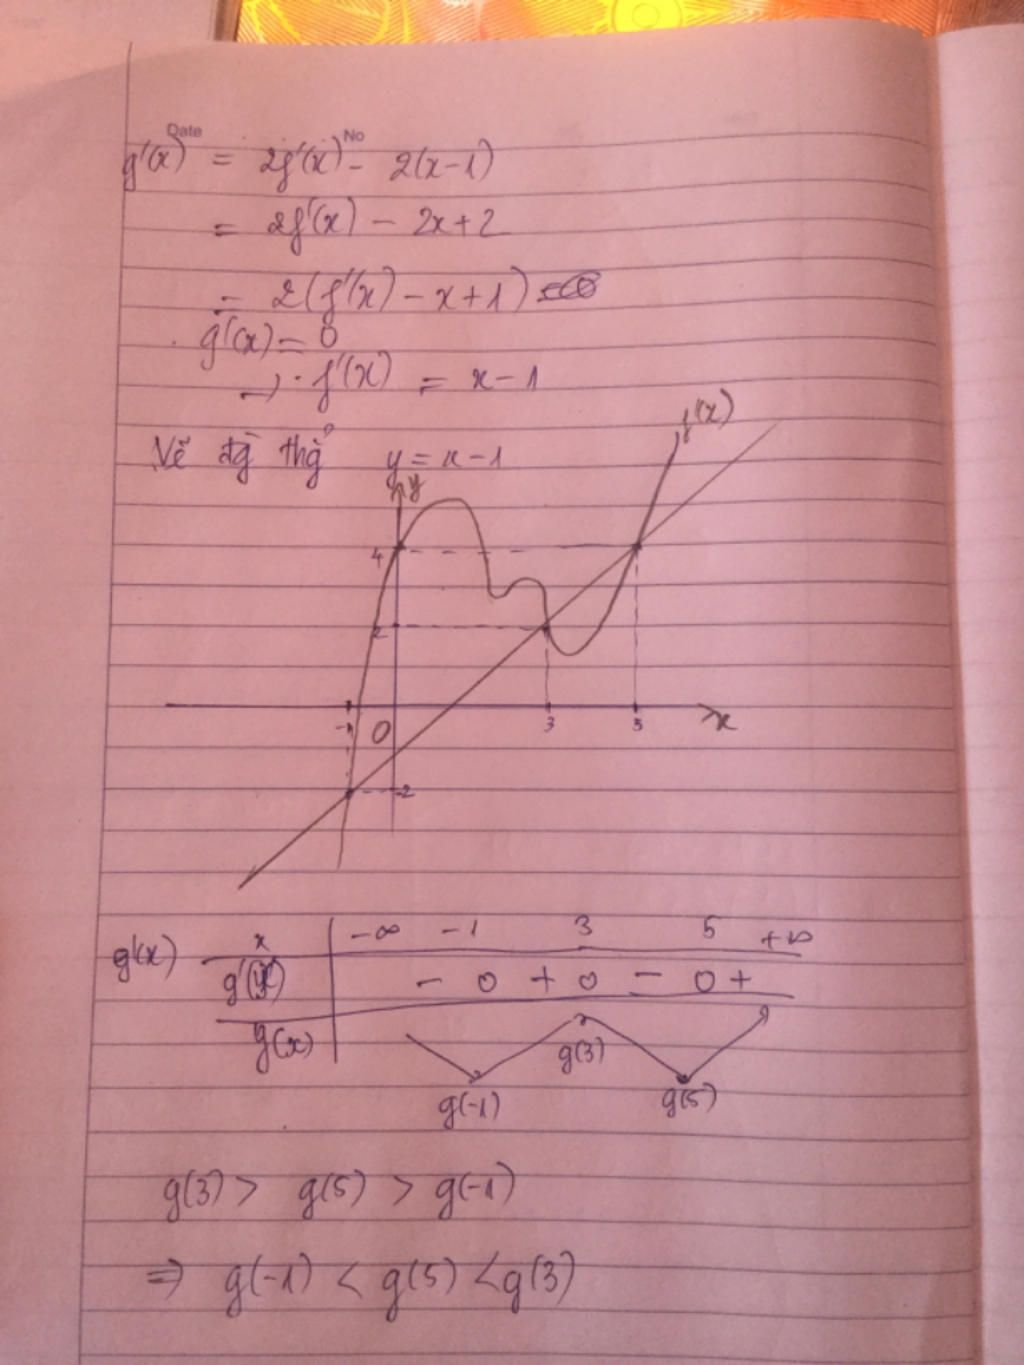 Date No
g'(x) = 2f'(x) - 2(x-1)
= 2f'(x) - 2x+2
= 2(f'(x) - x+1)
g'(x) = 0
→ f'(x) = x-1
Vẽ đồ thị y = x-1
f'(x)
y
4
2
-1 O 3 5 x
-2
g'(x) x -∞ -1 3 5 +∞
g'(x) - 0 + 0 - 0 +
g(x) g(3)
g(-1) g(5)
g(3) > g(5) > g(-1)
⇒ g(-1) < g(5) < g(3)